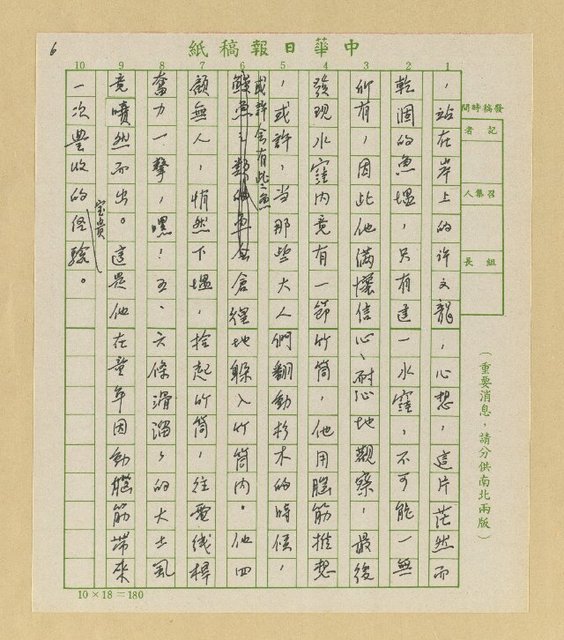 6
中華日報稿紙
發稿時間
記者
召集人
組長
（重要消息，請分供南北兩版）
10 9 8 7 6 5 4 3 2 1
，站在岸上的許文龍，心想，這片茫然而
乾涸的魚塭，只有這一水窪，不可能一無
所有，因此他滿懷信心、耐心地觀察，最後
發現水窪內竟有一節竹筒，他用腦筋推想
，或許，當那些大人們翻動杉木的時候，
或許會有些魚
鰻魚之類的魚會倉徨地躲入竹筒內。他四
顧無人，悄然下塭，拾起竹筒，往電線桿
奮力一擊，嘿！五、六條滑溜々的大土虱
竟噴然而出。這是他在童年因動腦筋帶來
一次豐收的經驗。
寶貴
10×18=180